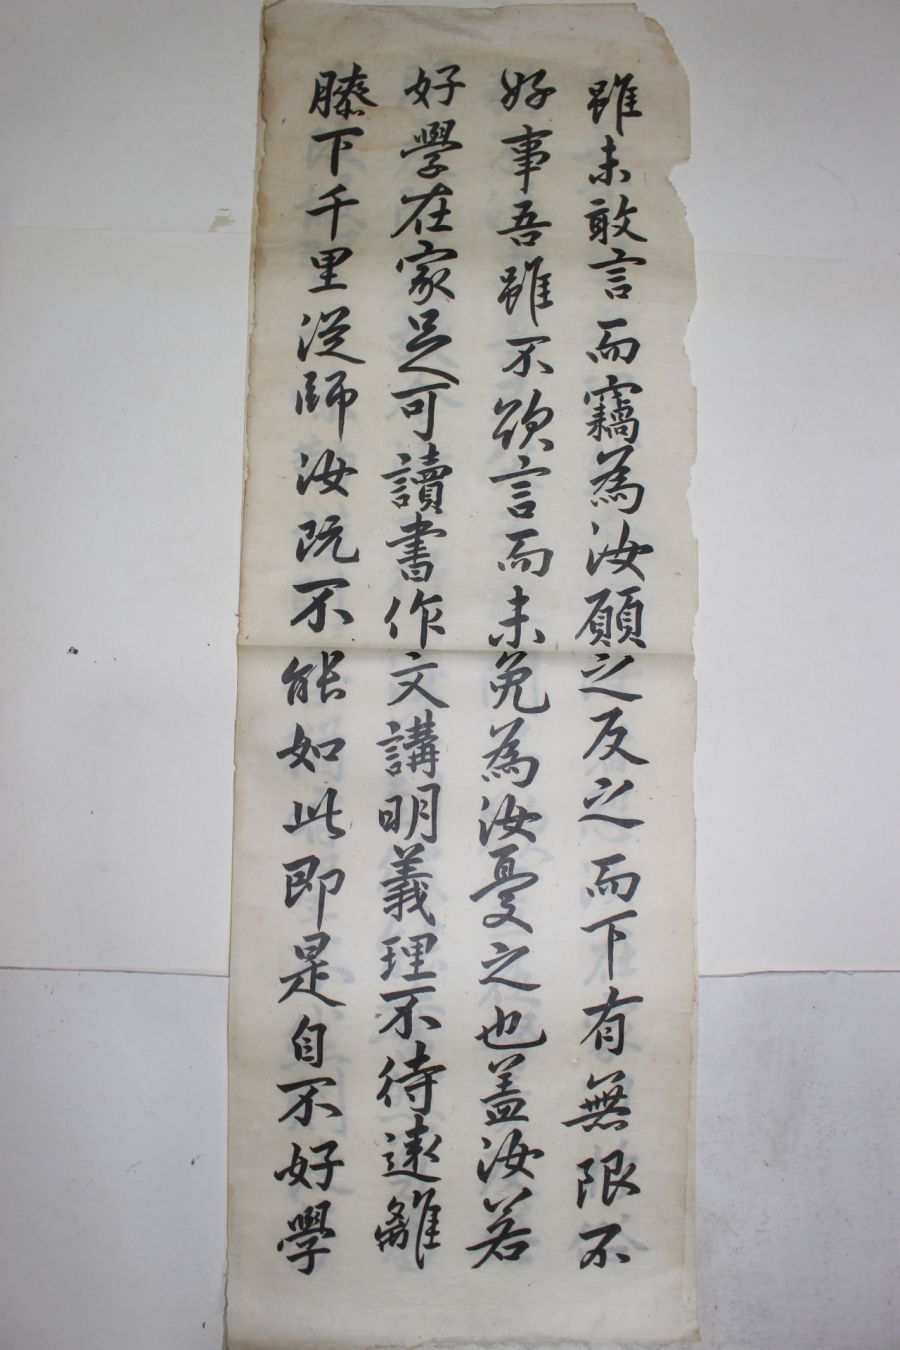 雖未敢言而竊為汝願之反之而下有無限不
好事吾雖不欲言而未免為汝憂之也盖汝若
好學在家足可讀書作文講明義理不待遠離
膝下千里從師汝既不能如此即是自不好學